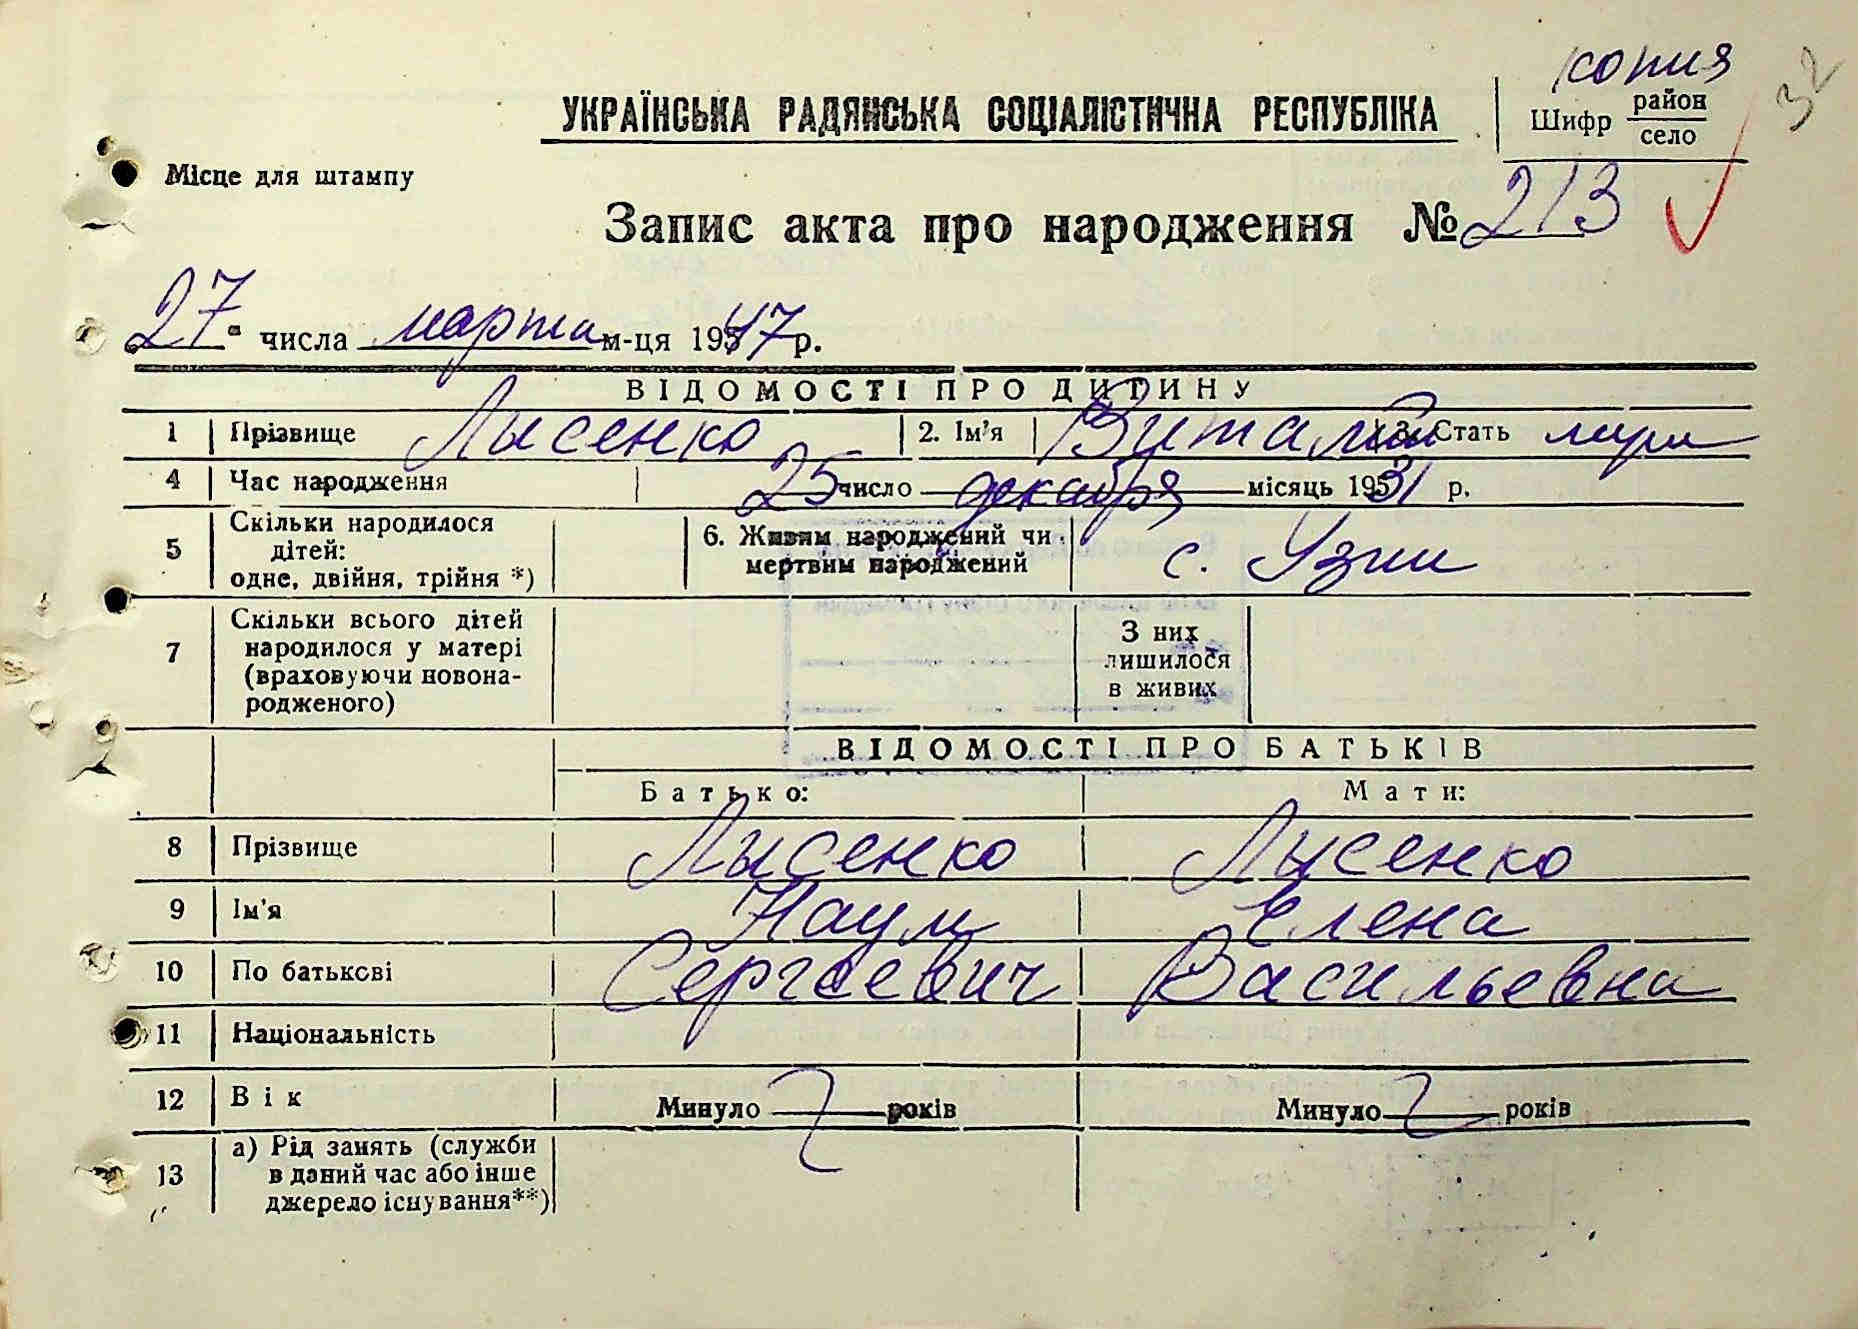 копия
32
УКРАЇНСЬКА РАДЯНСЬКА СОЦІАЛІСТИЧНА РЕСПУБЛІКА
Шифр район
село
Місце для штампу
Запис акта про народження № 213
27 " числа марта м-ця 1947 р.
ВІДОМОСТІ ПРО ДИТИНУ
1 Прізвище Лысенко 2. Ім'я Виталий 3. Стать муж
4 Час народження 25 число декабря місяць 1931 р.
5 Скільки народилося
дітей:
одне, двійня, трійня *)
6. Живим народжений чи
мертвим народжений
с. Узин
7 Скільки всього дітей
народилося у матері
(враховуючи новона-
родженого)
З них
лишилося
в живих
ВІДОМОСТІ ПРО БАТЬКІВ
Батько: Мати:
8 Прізвище Лысенко Лысенко
9 Ім'я Наум Елена
10 По батькові Сергеевич Васильевна
11 Національність
12 Вік Минуло років Минуло років
13 а) Рід занять (служби
в даний час або інше
джерело існування**)